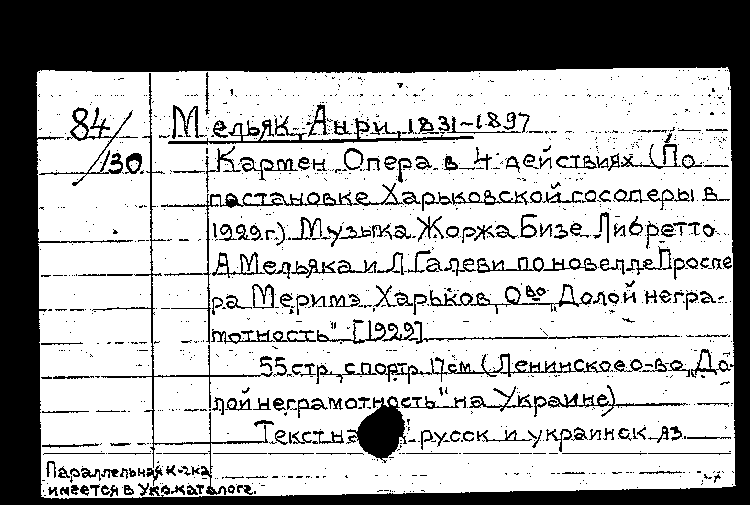 84/130
Мельяк, Анри, 1831–1897
Кармен Опера в 4 действиях (По
постановке Харьковской госоперы в
1929г.) Музыка Жоржа Бизе Либретто
А.Мельяка и Л.Галеви по новелле Проспе
ра Меримэ Харьков, О-во „Долой негра-
мотность" [1929]
55стр., с портр. 17см (Ленинское о-во „До-
лой неграмотность" на Украине)
Текст на русск и украинск яз
Параллельная к-чка
имеется в Укр.каталоге.